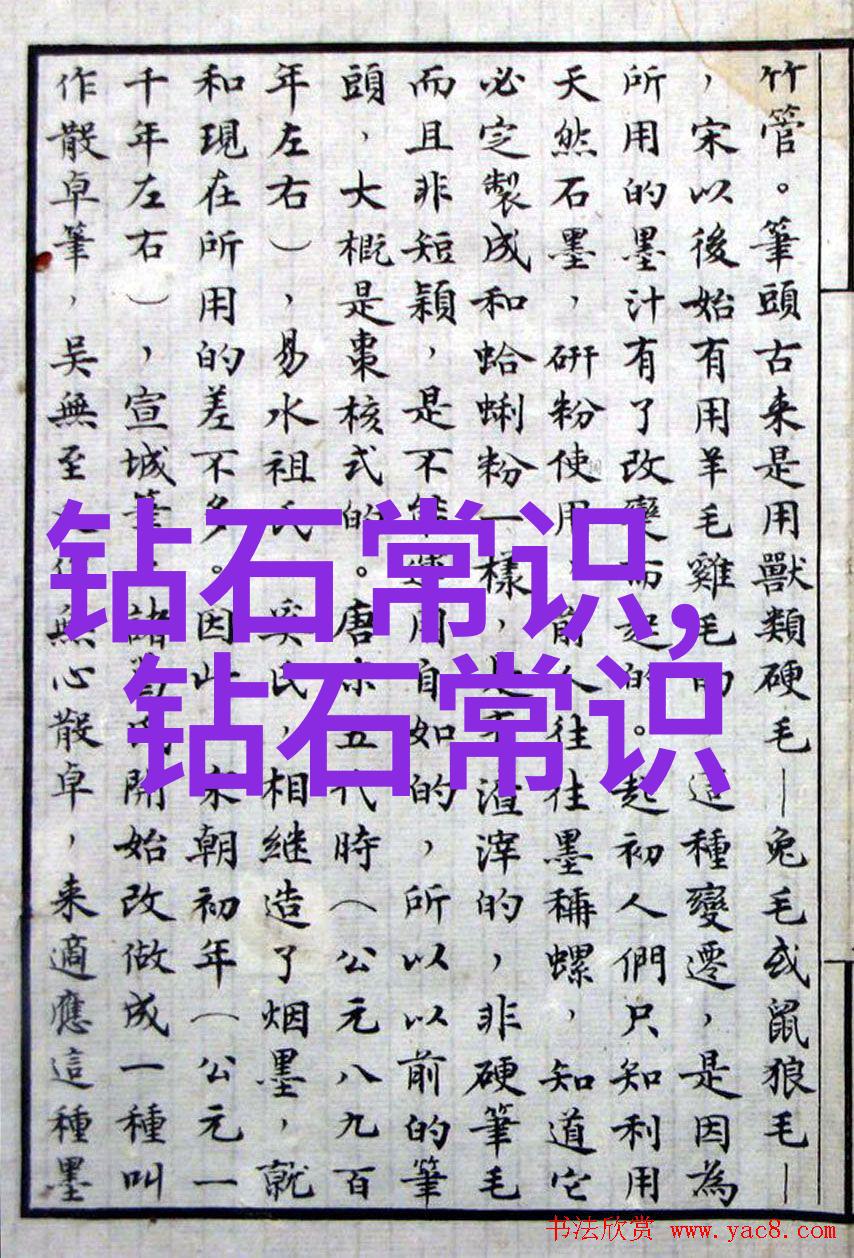 竹管。筆頭古来是用獸類硬毛—兔毛或鼠狼毛—
，宋以後始有用羊毛雞毛的這種變遷，是因為
所用的墨汁有了改變而起的。起初人們只知利用
天然石墨，研粉使用，前人往往墨稱螺，知道它
必定製成和蛤蜊粉一樣，是有渣滓的，非硬筆毛
而且非短穎，是不能運用自如的，所以以前的筆
頭，大概是棗核式的。唐末五代時（公元八九百
年左右），易水祖氏奚氏，相継造了烟墨，就
和現在所用的差不多。因此宋朝初年（公元一
千年左右），宣城筆諸葛氏開始改做成一種叫
作散卓筆，吴無至作無心散卓，来適應這種墨
钻石常识,
钻石常识
书法欣赏 www.yac8.com